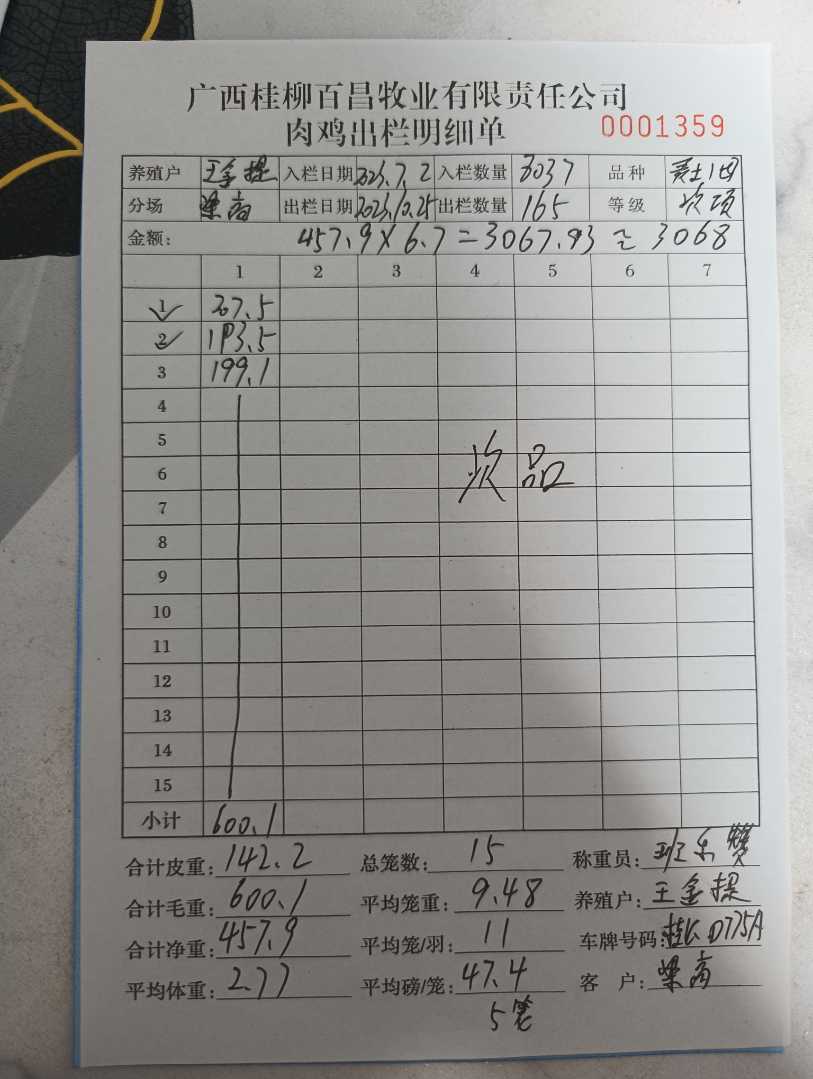 广西桂柳百昌牧业有限责任公司
肉鸡出栏明细单 0001359
养殖户 王金提 入栏日期 2023.7.2 入栏数量 3037 品种
分场 梁高 出栏日期 2023.10.25 出栏数量 165 等级 次项
金额: 457.9×6.7=3067.93≈3068
1 2 3 4 5 6 7
1 207.5
2 193.5
3 199.1
4
5
6 次品
7
8
9
10
11
12
13
14
15
小计 600.1
合计皮重: 142.2 总笼数: 15 称重员:
合计毛重: 600.1 平均笼重: 9.48 养殖户: 王金提
合计净重: 457.9 平均笼/羽: 11 车牌号码: D775A
平均体重: 2.77 平均磅/笼: 47.4 客 户: 梁高
5笼